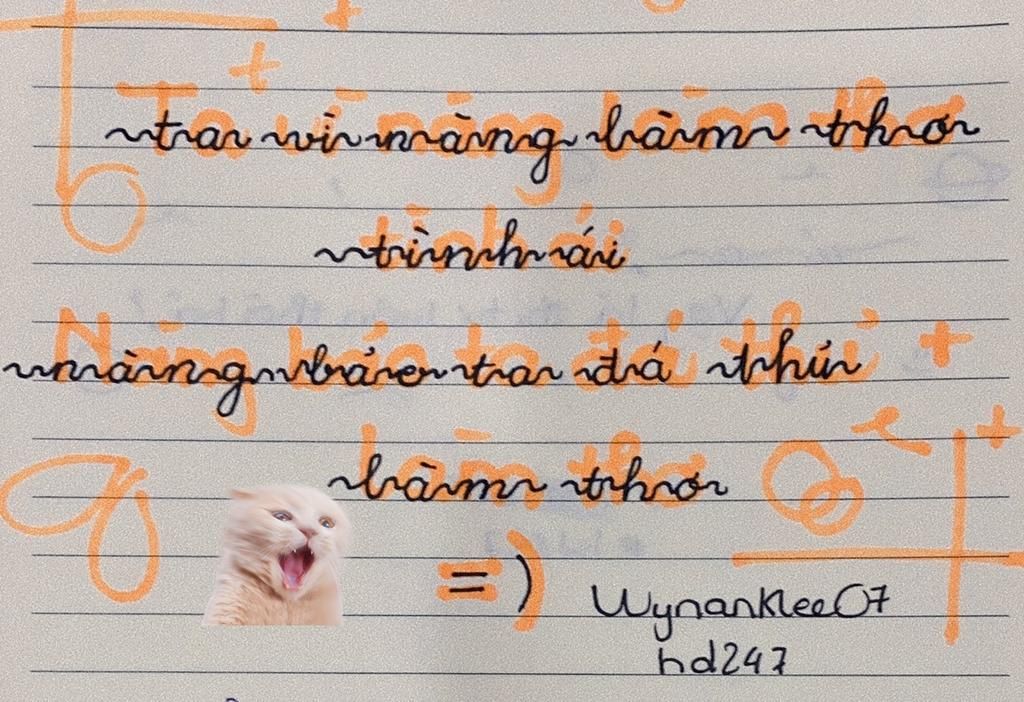 ta vì nàng làm thơ
tình ái
nàng bảo ta đá
làm thơ
=)
WynanKlee07
hd247